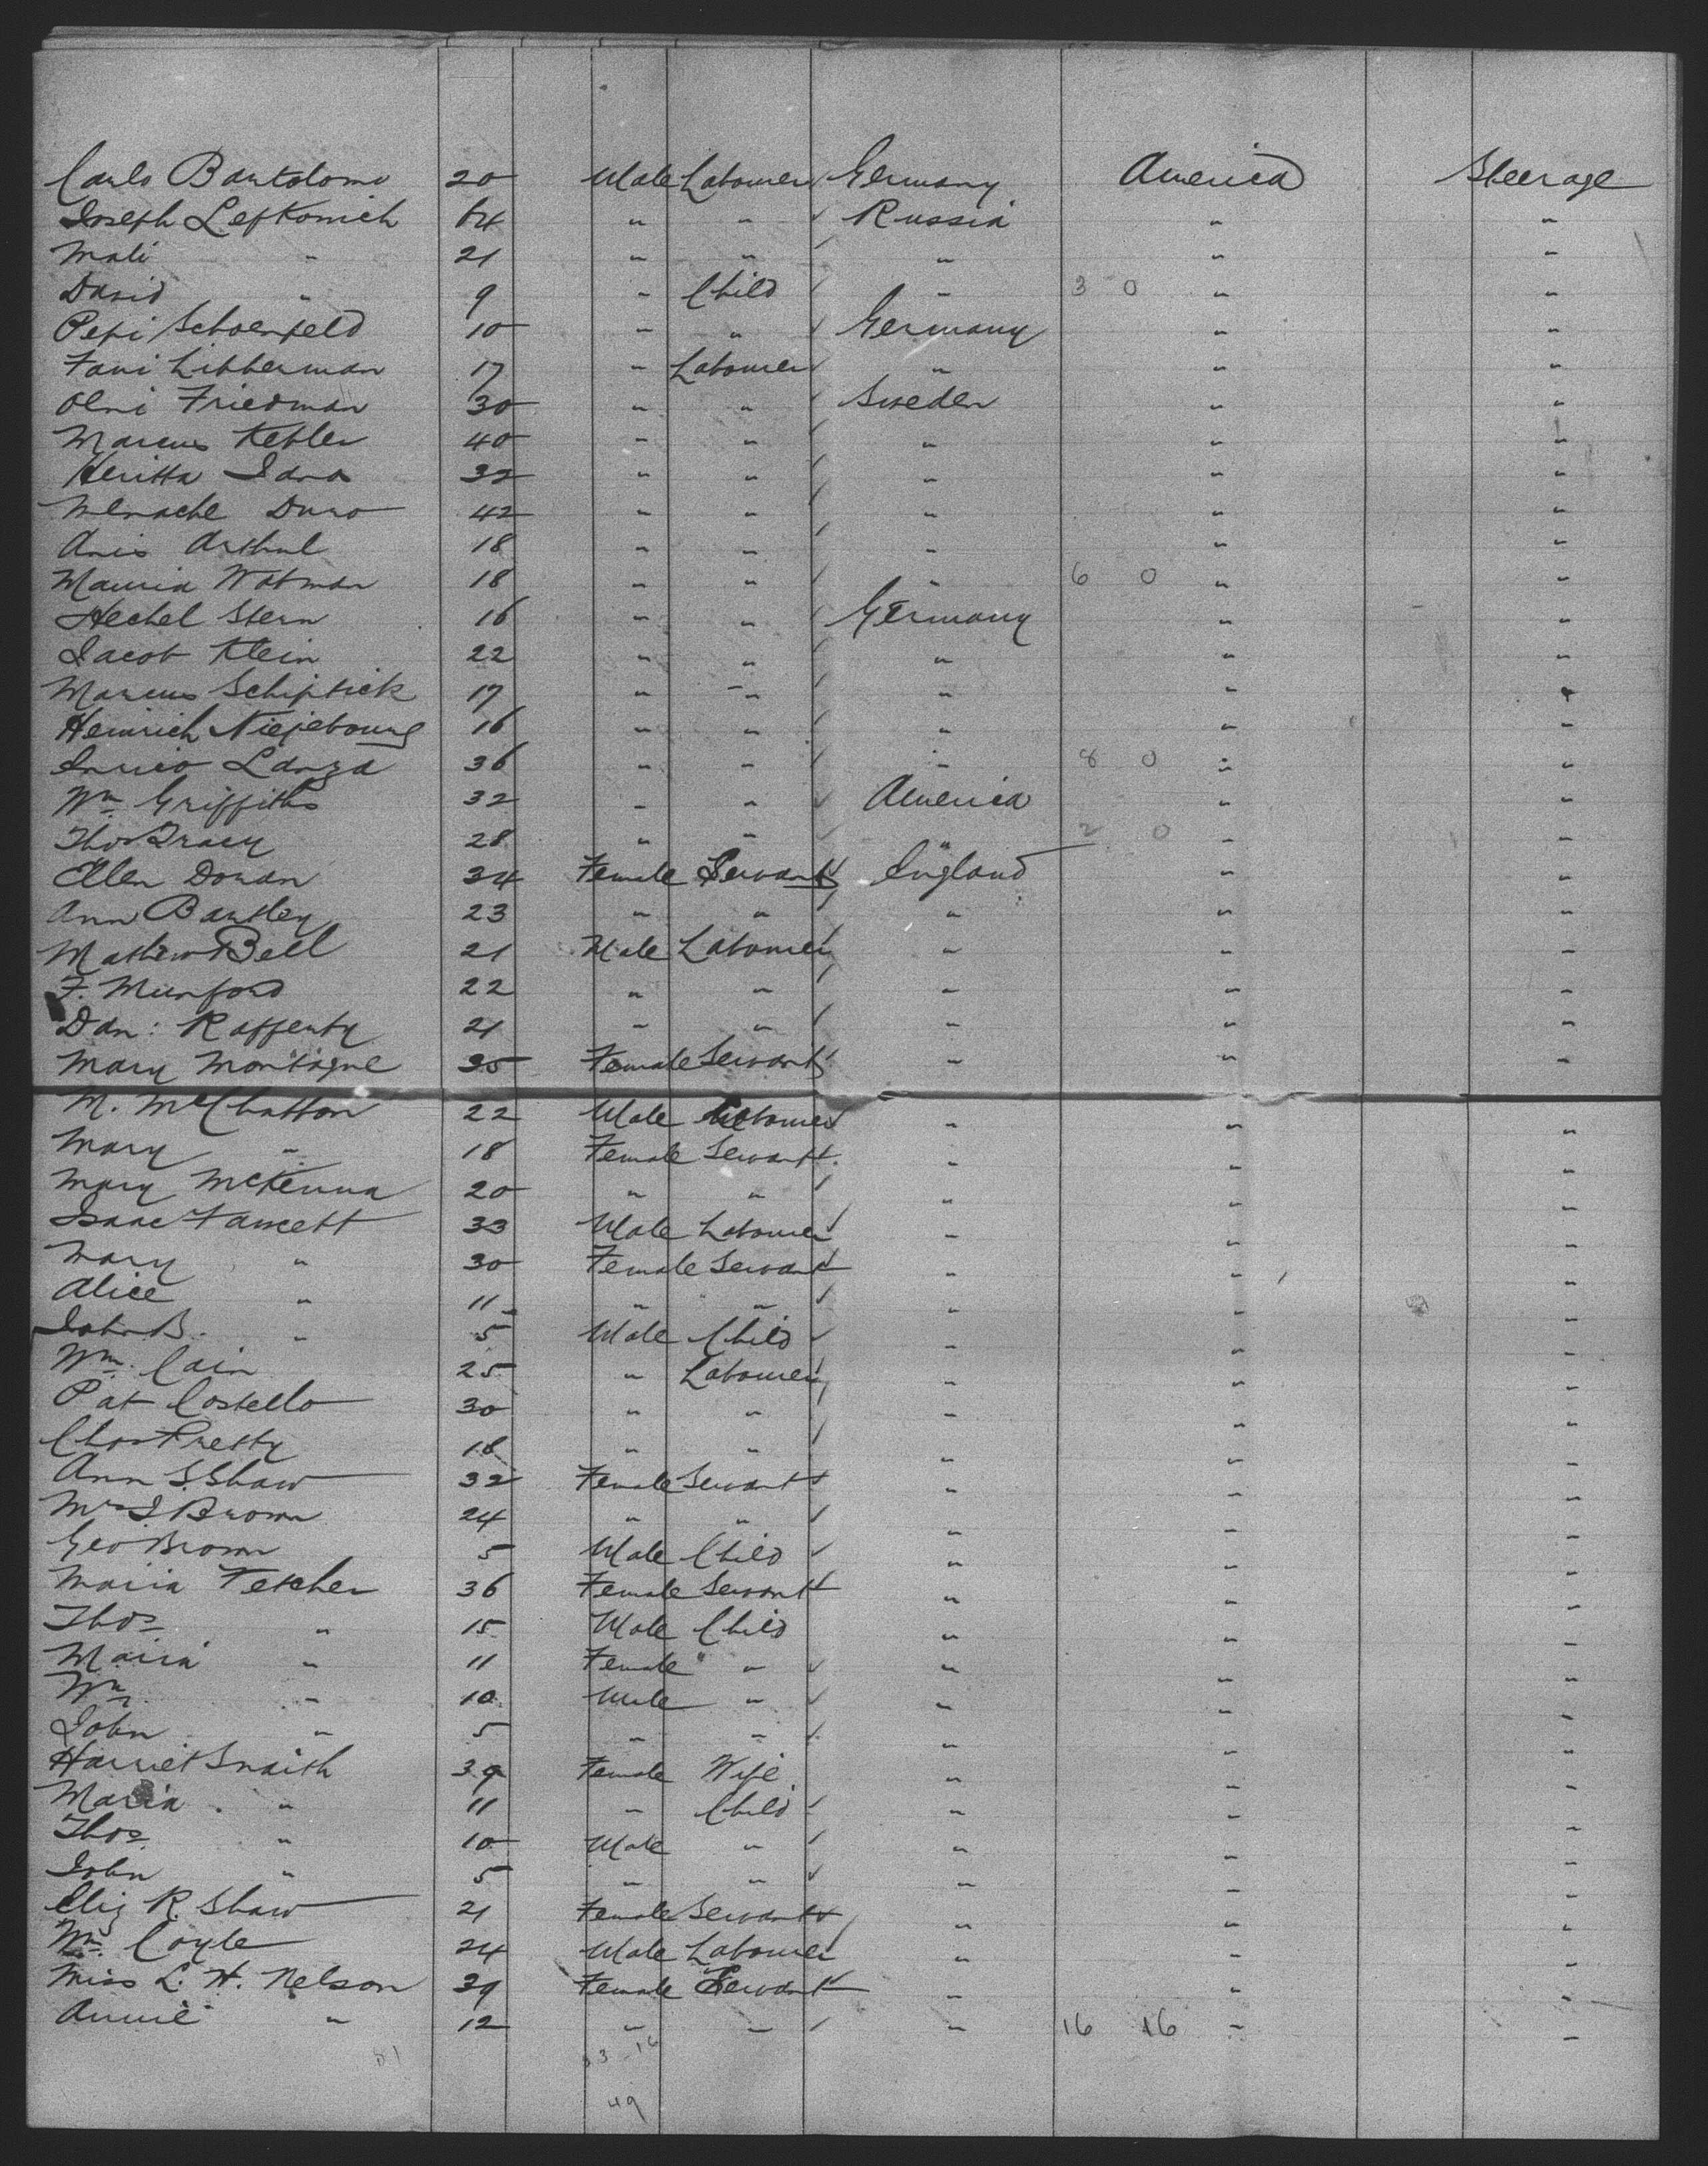 Carlo Bartolomo 20 Male Labourer Germany America Steerage
Joseph Lefkonich 64 " " Russia " "
Mali " 21 " " " " "
David " 9 " Child " 3 0 " "
Pepi Schoenfeld 10 " " Germany " "
Fani Libberman 17 " Labourer " " "
Olni Friedman 30 " " Sweden " "
Marcus Kebler 40 " " " " "
Heritta 32 " " " " "
Menache 42 " " " " "
18 " " " " "
Wotman 18 " " " 6 0 " "
Hechel Stern 16 " " Germany " "
Jacob Klein 22 " " " " "
Marcus Schipsick 17 " " " " "
Heinrich 16 " " " " "
Lanza 36 " " " 8 0 " "
Wm Griffiths 32 " " America " "
Thos Tracy 28 " " " 2 0 " "
Ellen Doran 34 Female Servant England " "
Ann Bantley 23 " " " " "
Mathew Bell 21 Male Labourer " " "
F. Munford 22 " " " " "
Dan: Rafferty 21 " " " " "
Mary Montagne 35 Female Servant " " "
M. McChatton 22 Male Labourer " " "
Mary " 18 Female Servant " " "
Mary McKenna 20 " " " " "
Isaac Fawcett 33 Male Labourer " " "
Mary " 30 Female Servant " " "
Alice " 11 " " " " "
John B. " 5 Male Child " " "
Wm. Cain 25 " Labourer " " "
Pat Costello 30 " " " " "
Chas Pretty 18 " " " " "
Ann S. Shaw 32 Female Servant " " "
Mrs J Brown 24 " " " " "
Geo Brown 5 Male Child " " "
Maria Fetcher 36 Female Servant " " "
Thos " 15 Male Child " " "
Maria " 11 Female " " " "
Wm " 10 Male " " " "
John " 5 " " " " "
Harriet Snaith 39 Female Wife " " "
Maria " 11 " Child " " "
Thos " 10 Male " " " "
John " 5 " " " " "
Eliz R. Shaw 21 Female Servant " " "
Wm. Coyle 24 Male Labourer " " "
Miss L. H. Nelson 39 Female Servant " " "
Annie " 12 " " " 16 16 " "
51 33 - 16
49